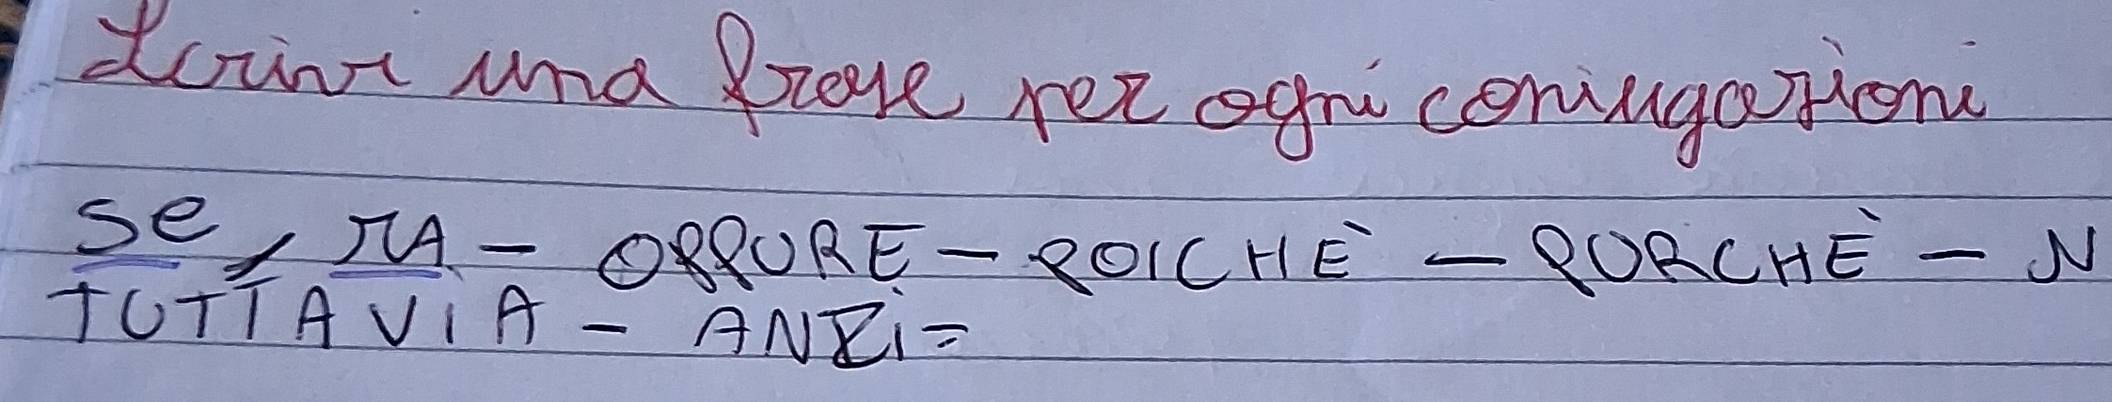 Scrivi una frase per ogni coniugazioni
se, MA - OPPURE - POICHÈ - PURCHÈ - N
TUTTAVIA - ANZi=